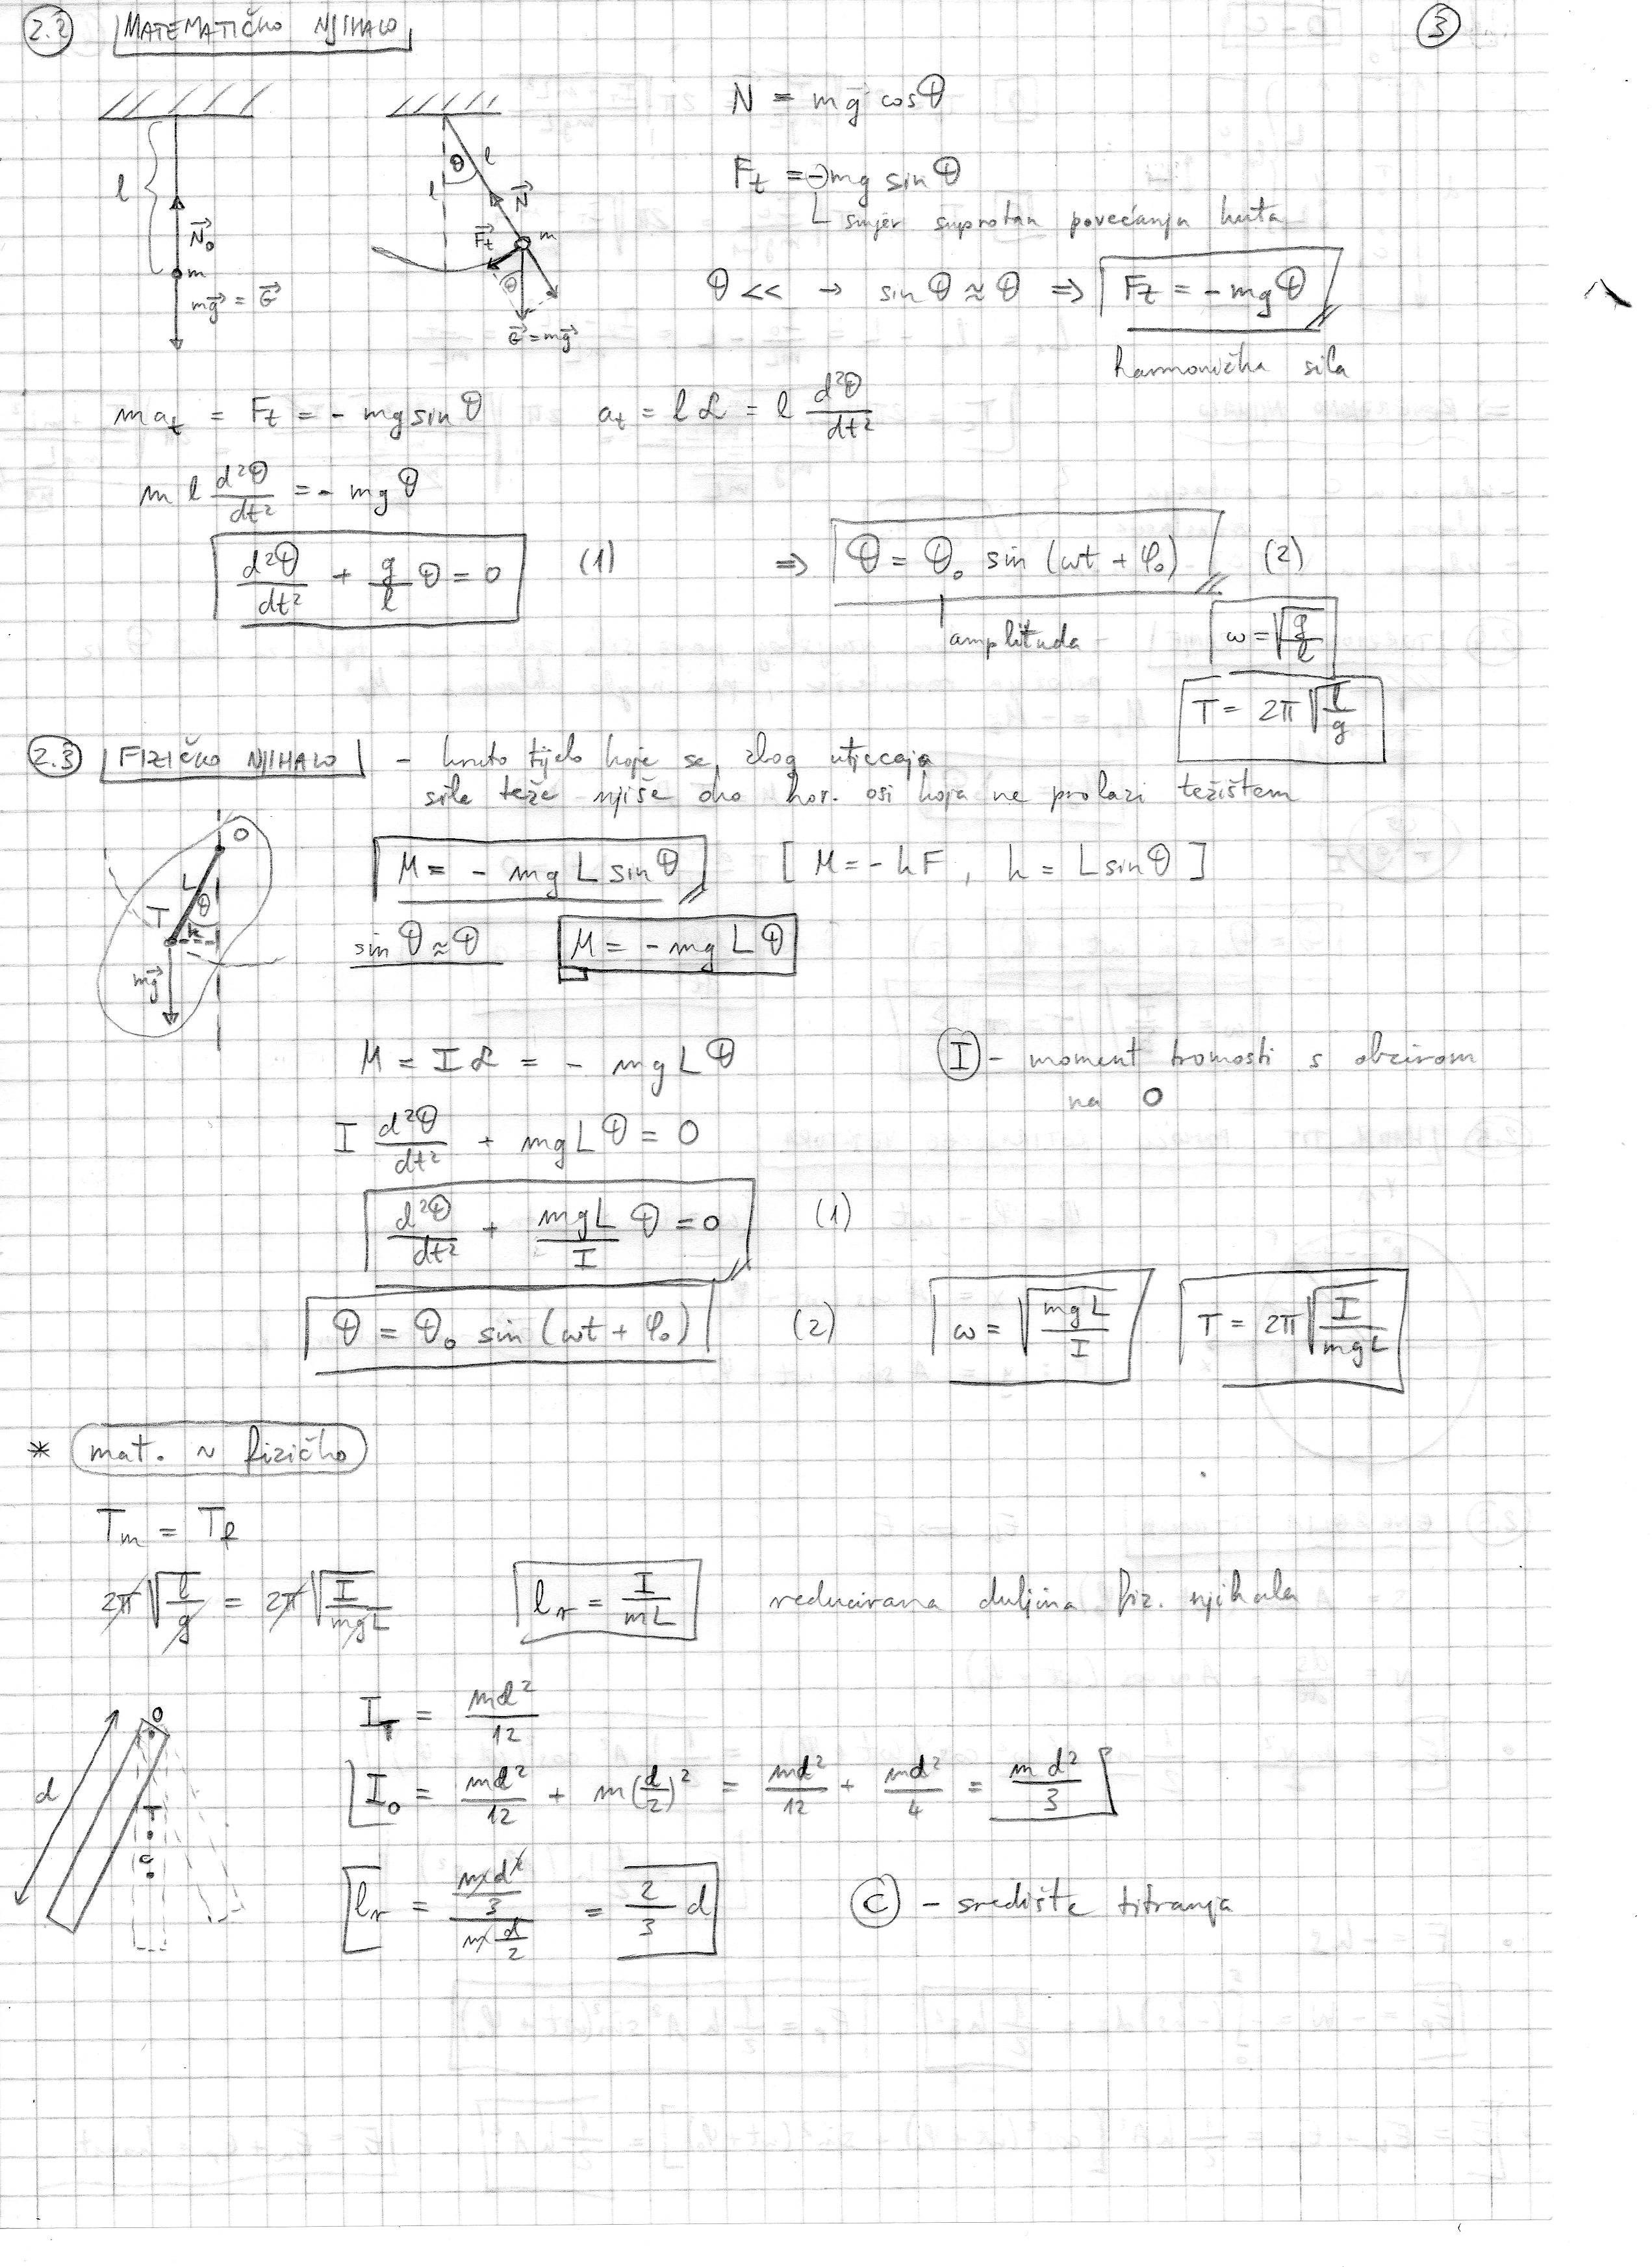 2.2 MATEMATIČKO NJIHALO 3
l N⃗₀ m mg⃗ = G⃗
θ l l N⃗ F⃗t m θ G⃗ = mg⃗
N = mg cosθ
Ft = -mg sinθ
smjer suprotan povećanju kuta
θ << → sinθ ≈ θ ⇒ Ft = -mgθ
harmonička sila
m at = Ft = - mg sinθ at = l α = l d²θ/dt²
m l d²θ/dt² = - mg θ
d²θ/dt² + g/l θ = 0 (1) ⇒ θ = θ₀ sin (ωt + φ₀) (2)
amplituda ω = √(g/l)
T = 2π √(l/g)
2.3 FIZIČKO NJIHALO - kruto tijelo koje se zbog utjecaja
sile teže njiše oko hor. osi koja ne prolazi težištem
O L θ T k mg⃗
M = - mg L sinθ [ M = - k F , k = L sinθ ]
sinθ ≈ θ M = - mg L θ
M = I α = - mg L θ I - moment tromosti s obzirom
na O
I d²θ/dt² + mg L θ = 0
d²θ/dt² + mgL/I θ = 0 (1)
θ = θ₀ sin (ωt + φ₀) (2) ω = √(mgL/I) T = 2π √(I/mgL)
* mat. ~ fizičko
Tm = Tf
2π √(l/g) = 2π √(I/mgL) lr = I/mL reducirana duljina fiz. njihala
d O T C
IT = md²/12
I₀ = md²/12 + m(d/2)² = md²/12 + md²/4 = md²/3
lr = (md²/3)/(m d/2) = 2/3 d C - središte titranja